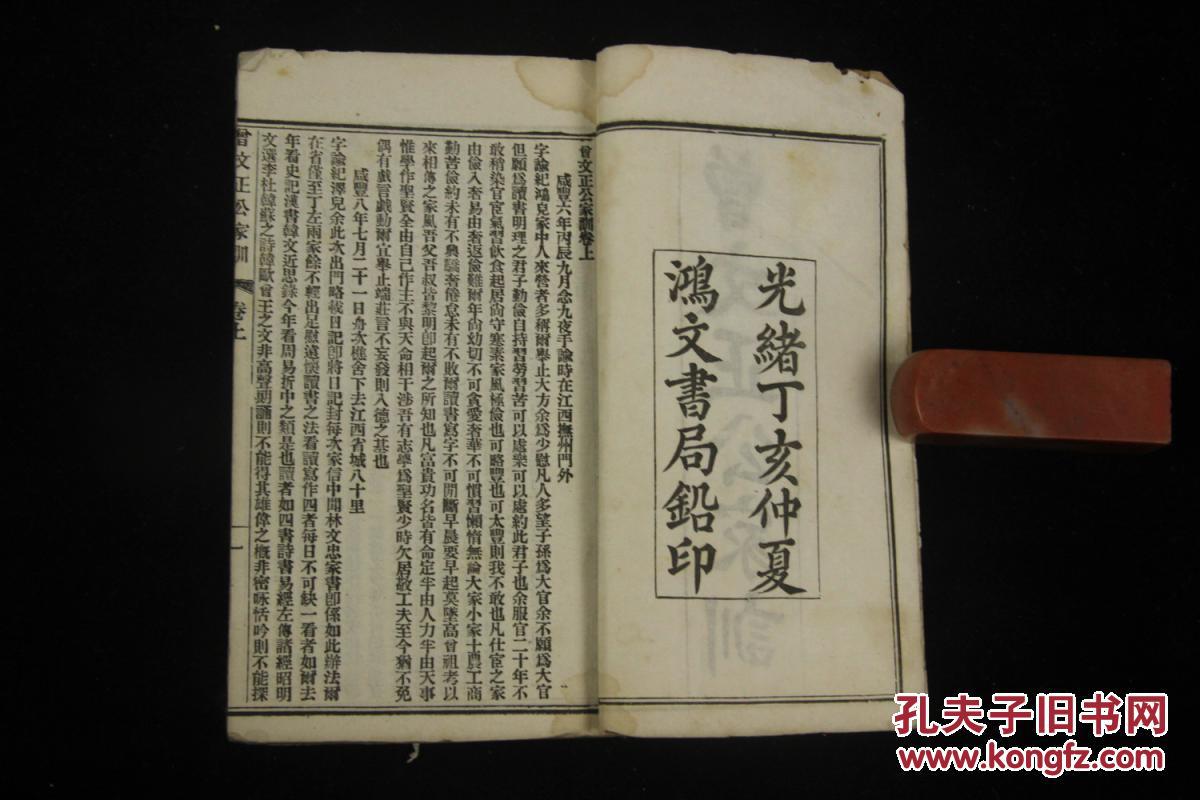 光緒丁亥仲夏
鴻文書局鉛印
曾文正公家訓卷上
咸豐六年丙辰九月念九夜手諭時在江西撫州門外
字諭紀鴻兒家中人來營者多稱爾舉止大方余爲少慰凡人多望子孫爲大官余不願爲大官
但願爲讀書明理之君子勤儉自持習勞習苦可以處樂可以處約此君子也余服官二十年不
敢稍染官宦氣習飲食起居尚守寒素家風極儉也可略豐也可太豐則我不敢也凡仕宦之家
由儉入奢易由奢返儉難爾年尚幼切不可貪愛奢華不可慣習懶惰無論大家小家士農工商
勤苦儉約未有不興驕奢倦怠未有不敗爾讀書寫字不可間斷早晨要早起莫墜高曾祖考以
來相傳之家風吾父吾叔皆黎明卽起爾之所知也凡富貴功名皆有命定半由人力半由天事
惟學作聖賢全由自己作主不與天命相干涉吾有志學爲聖賢少時欠居敬工夫至今猶不免
偶有戲言戲動爾宜舉止端莊言不妄發則入德之基也
咸豐八年七月二十一日舟次樵舍下去江西省城八十里
字諭紀澤兒余此次出門略載日記卽將日記封每次家信中聞林文忠家書卽係如此辦法爾
在省僅至丁左兩家餘不輕出足慰遠懷讀書之法看讀寫作四者每日不可缺一看者如爾去
年看史記漢書韓文近思錄今年看周易折中之類是也讀者如四書詩書易經左傳諸經昭明
文選李杜韓蘇之詩韓歐曾王之文非高聲朗誦則不能得其雄偉之概非密咏恬吟則不能探
曾文正公家訓
卷上
一
孔夫子旧书网
www.kongfz.com